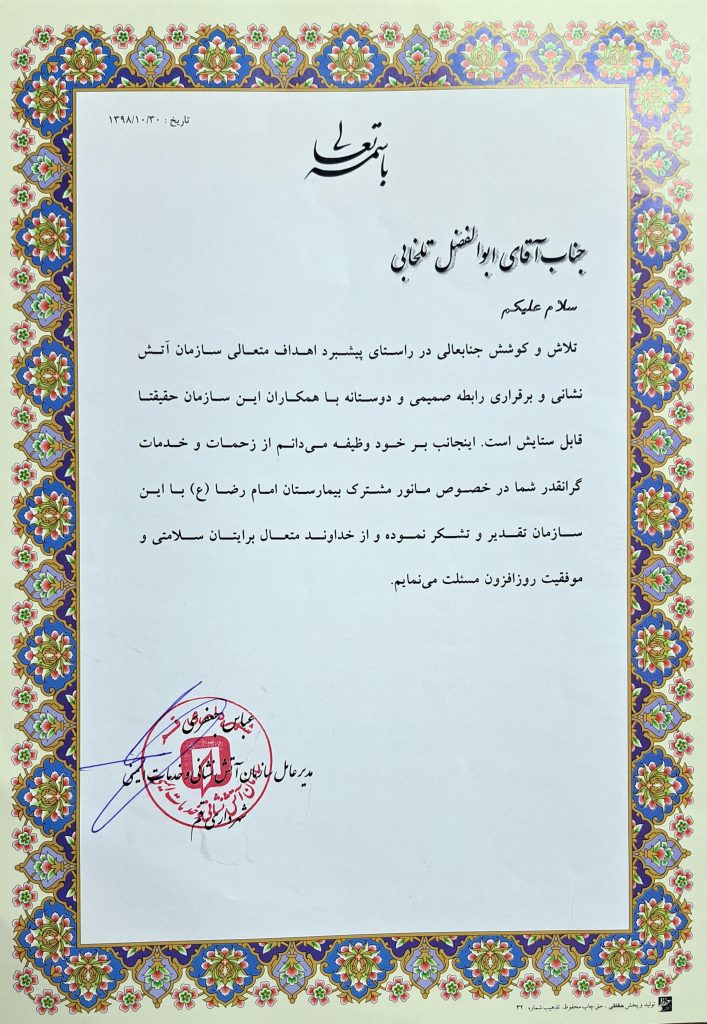 تاریخ : ۱۳۹۸/۱۰/۳۰
باسمه تعالی
جناب آقای ابوالفضل تلخابی
سلام علیکم
تلاش و کوشش جنابعالی در راستای پیشبرد اهداف متعالی سازمان آتش
نشانی و برقراری رابطه صمیمی و دوستانه با همکاران این سازمان حقیقتا
قابل ستایش است. اینجانب بر خود وظیفه می‌دانم از زحمات و خدمات
گرانقدر شما در خصوص مانور مشترک بیمارستان امام رضا (ع) با این
سازمان تقدیر و تشکر نموده و از خداوند متعال برایتان سلامتی و
موفقیت روزافزون مسئلت می‌نمایم.
عباس جعفری
مدیر عامل سازمان آتش نشانی و خدمات ایمنی
شهرداری قم
تولید و پخش حفظی . حق چاپ محفوظ. تذهیب شماره : ۳۲